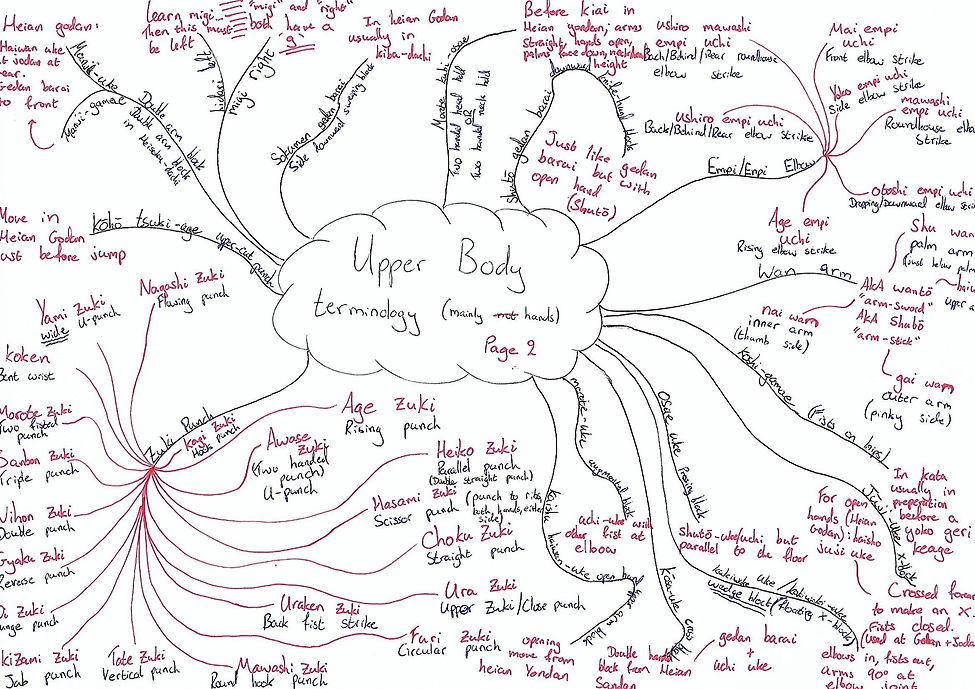 Heian godan:
Haiwan uke
at Jodan at
rear.
Gedan barai
to front
Manji-uke
Manji-gamae
Double arm block
Double arm block
in Heisoku-dachi
learn migi...
Then this must
be left
"migi" and "right"
both have a
g
hidari left
migi right
In heian Godan
usually in
kiba-dachi
Sokumen gedan barai
Side downward sweeping block
Morote kubi osae
Two handed head hold
OR
Two handed neck hold
Before kiai in
Heian yondan; arms
straight, hands open,
palms face down, neck/head
height
Shutō gedan barai
downward knife-hand block
Just like gedan
barai but with
open hand
(Shutō)
Empi/Enpi Elbow
Ushiro mawashi
empi uchi
Back/Behind/rear roundhouse
elbow strike
Ushiro empi uchi
Back/Behind/Rear elbow strike
Mai empi
uchi
Front elbow strike
Yoko empi uchi
Side elbow strike
mawashi
empi uchi
Roundhouse elbow
strike
Otoshi empi uchi
Dropping/Downward elbow strike
Age empi
uchi
Rising elbow strike
Move in
Heian Godan
just before jump
Kōhō tsuki-age
upper-cut punch
Upper Body
terminology (mainly not hands)
Page 2
Wan arm
AKA wantō
"arm-sword"
AKA Shubō
"arm-stick"
Shu wan
palm arm
(just below palm)
upper
nai wan
inner arm
(thumb side)
gai wan
outer arm
(pinky side)
Koshi-gamae (Fists on hips)
In kata
usually in
preperation
before a
yoko geri
keage
Juji-uke x-block
For open
hands (Heian
Godan): haisho
juji uke
Crossed forearms
to make an X.
Fists closed.
(Used at Gedan + Jodan)
Osae uke Pressing block
Shutō-uke/uchi but
parallel to the floor
kakiwake uke / kakiwaki-uke
wedge block/(floating x-block)
elbows in, fists out,
arms 90° at
elbow joint
Kōsa-uke cross block
gedan barai
+
uchi uke
Double hand
block from Heian
Sandan
morote-uke augmented block
uchi-uke with
other fist at
elbow
Kaishu haiwan-uke open hand upper arm block
opening
move from
heian Yondan
Zuki Punch
Nagashi Zuki
Flowing punch
Yami Zuki
wide U-punch
Koken
Bent wrist
Morote Zuki
Two fisted
punch
Sanbon Zuki
Triple punch
Nihon Zuki
Double punch
Gyaku Zuki
Reverse punch
Oi Zuki
Lunge punch
Kizami Zuki
Jab punch
Tate Zuki
Vertical punch
Mawashi Zuki
Round hook punch
Furi Zuki
Circular punch
Uraken Zuki
Back fist strike
Ura Zuki
Upper Zuki/Close punch
Choku Zuki
Straight punch
Hasami Zuki (punch to ribs,
Scissor punch both, hands, either
side)
Heiko Zuki
Parallel punch
(Double straight punch)
Awase
Zuki
(Two handed
punch)
U-punch
Kagi Zuki
Hook punch
Age Zuki
Rising punch